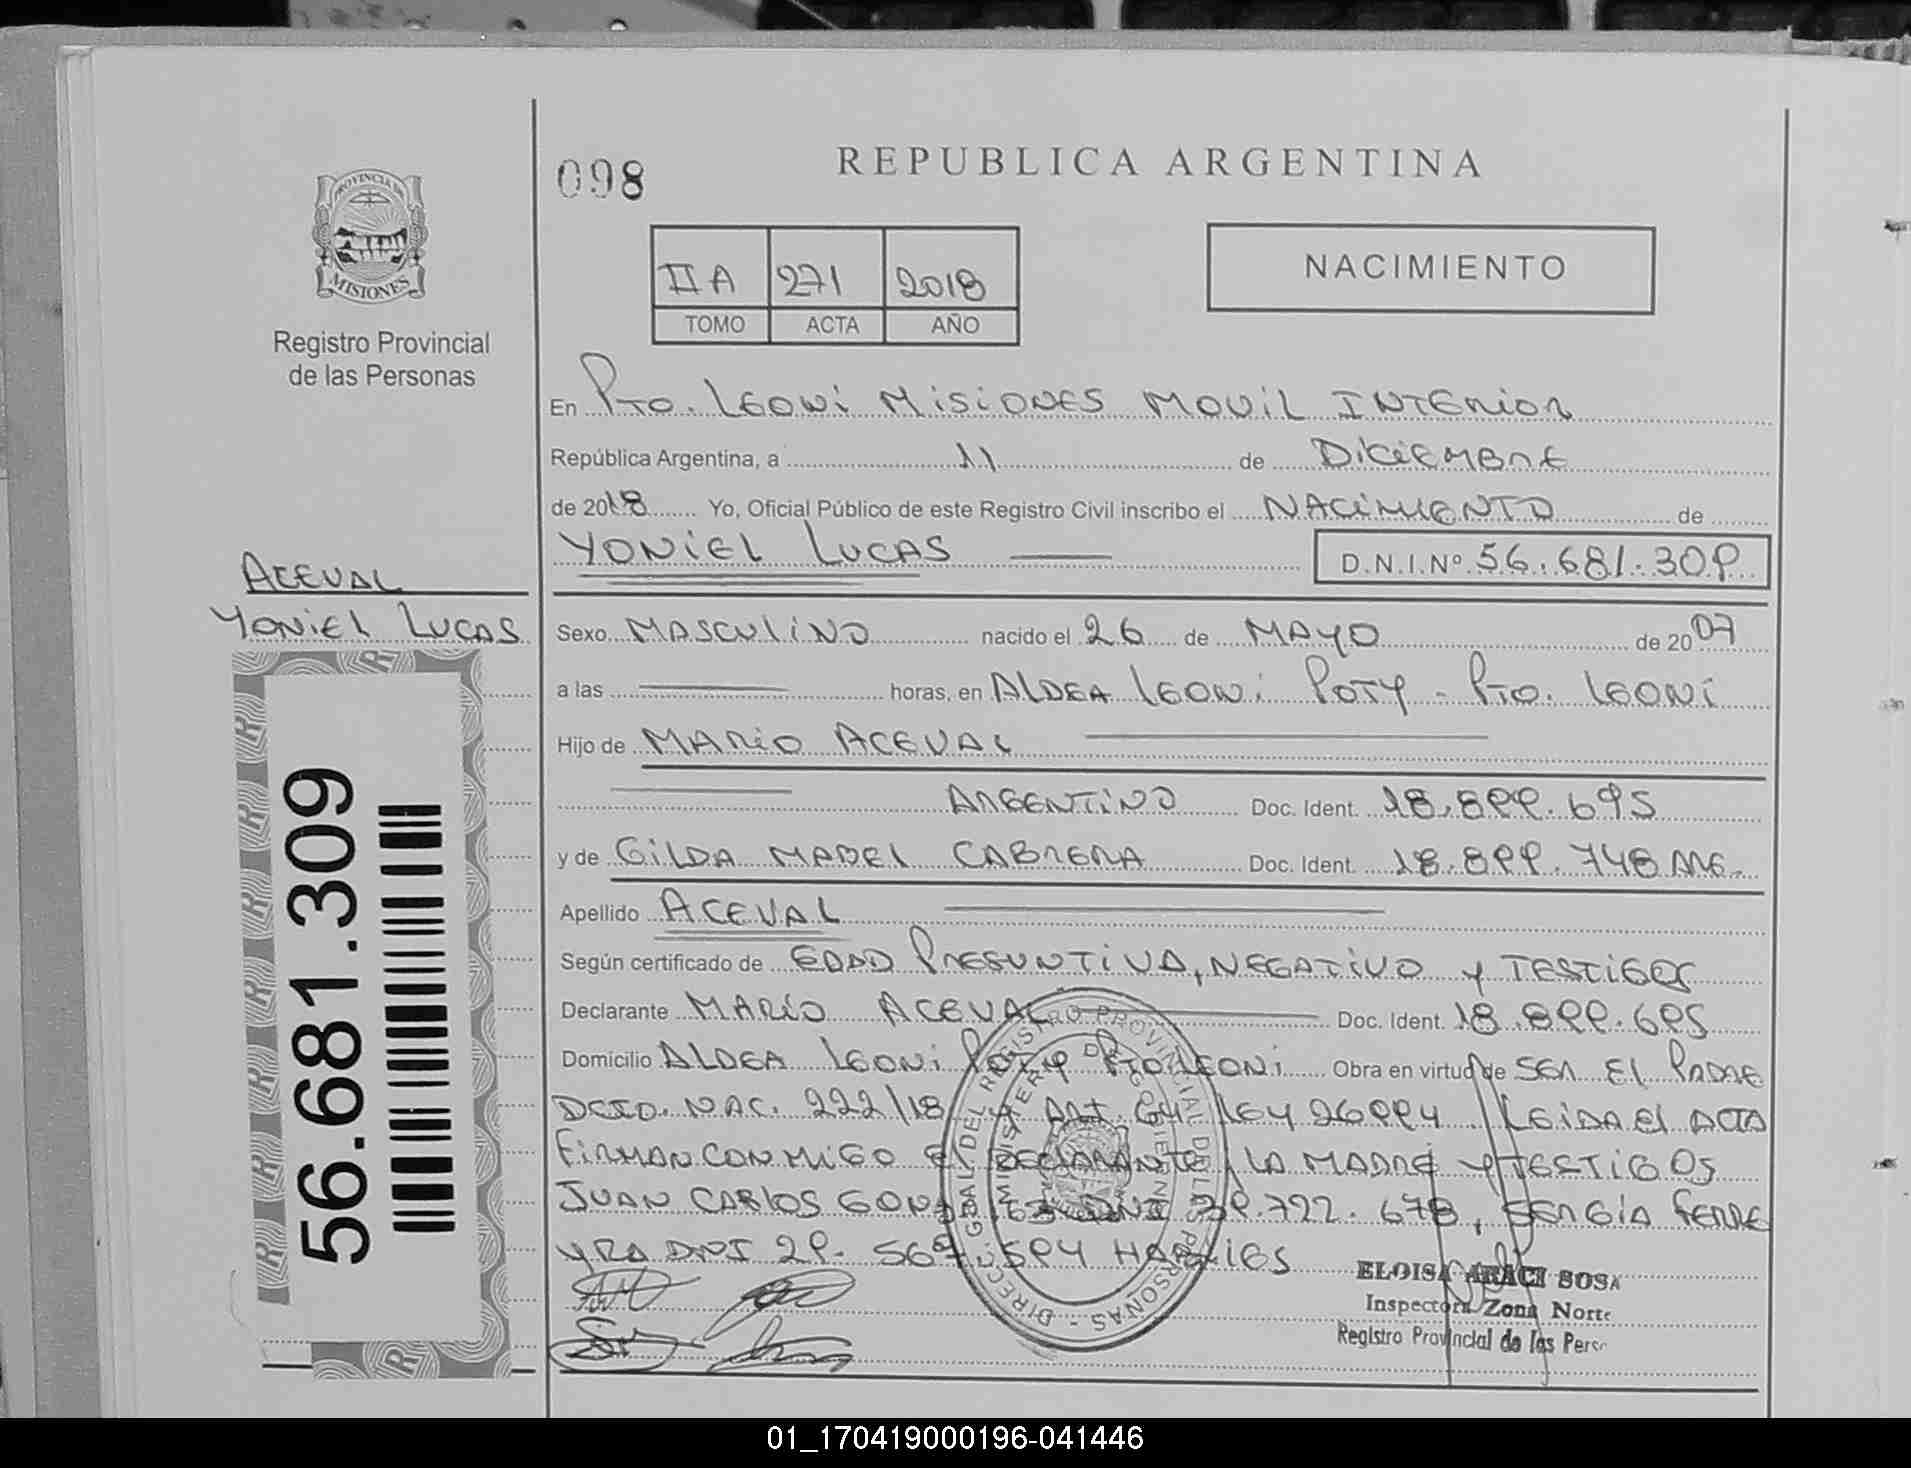 098
REPUBLICA ARGENTINA
PROVINCIA DE
MISIONES
Registro Provincial
de las Personas
II A 271 2018
TOMO ACTA AÑO
NACIMIENTO
En Pto. Leoni Misiones Movil Interior
República Argentina, a 11 de Diciembre
de 2018 Yo, Oficial Público de este Registro Civil inscribo el Nacimiento de
Yoniel Lucas D.N.I.Nº 56.681.309
Aceval
Yoniel Lucas
Sexo Masculino nacido el 26 de Mayo de 2007
a las horas, en Aldea Leoni Poty - Pto. Leoni
Hijo de Mario Aceval
Argentino Doc. Ident. 18.899.695
y de Gilda Mabel Cabrera Doc. Ident. 18.899.748 Arg.
Apellido Aceval
Según certificado de Edad Presuntiva, Negativo y Testigos
Declarante Mario Aceval Doc. Ident. 18.899.695
Domicilio Aldea Leoni Poty Pto Leoni Obra en virtud de ser el Padre
Dcto. Nac. 222/18 y Art. Ley 26994 Leida el acta
Firman conmigo el declarante, la madre y testigos
Juan Carlos DNI 39.722.678, Sergia Ferre
yra DNI 29. 594 Habiles
DIREC. GRAL DEL REGISTRO PROVINCIAL DE LAS PERSONAS
MINISTERIO DE GOBIERNO
ELOISA ARACI SOSA
Inspectora Zona Norte
Registro Provincial de las Pers
56.681.309
01_170419000196-041446